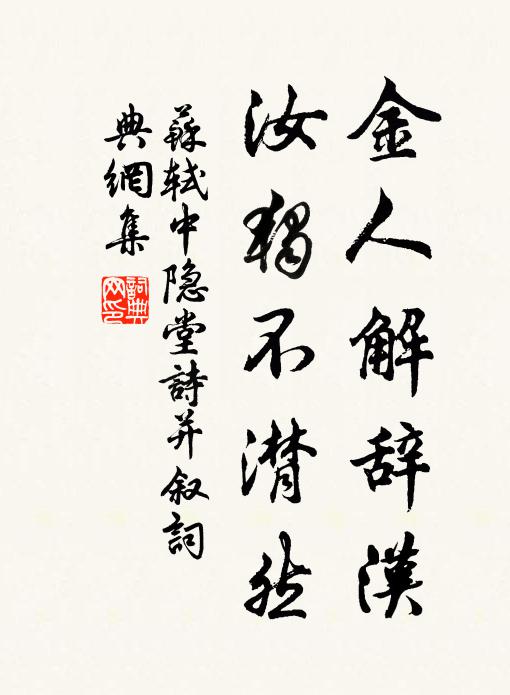 金人解辞漢
汝独不潸然
蘇軾中隐堂詩并叙詞
典網集
詞典网印